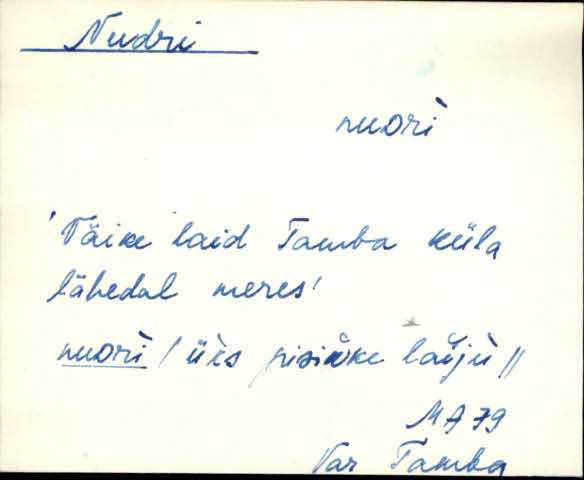 Nudri
nuoŕì
'Väike laid Tamba küla
lähedal meres'
nuoŕì / üks pisike läiju //
MA 79
Var Tamba